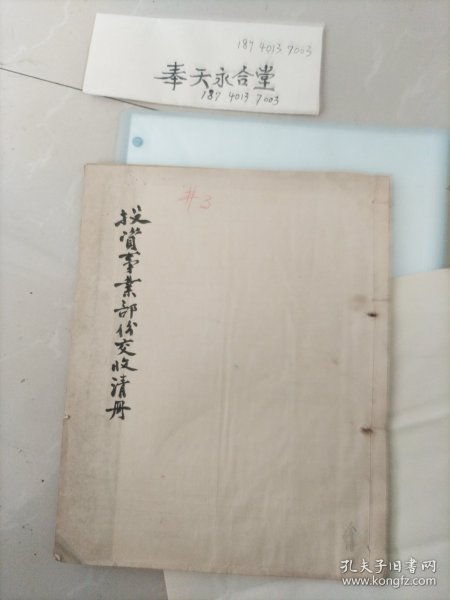 187 4013 7003
奉天永合堂
187 4013 7003
#3
投資事業部份交收清册
孔夫子旧书网
www.kongfz.com